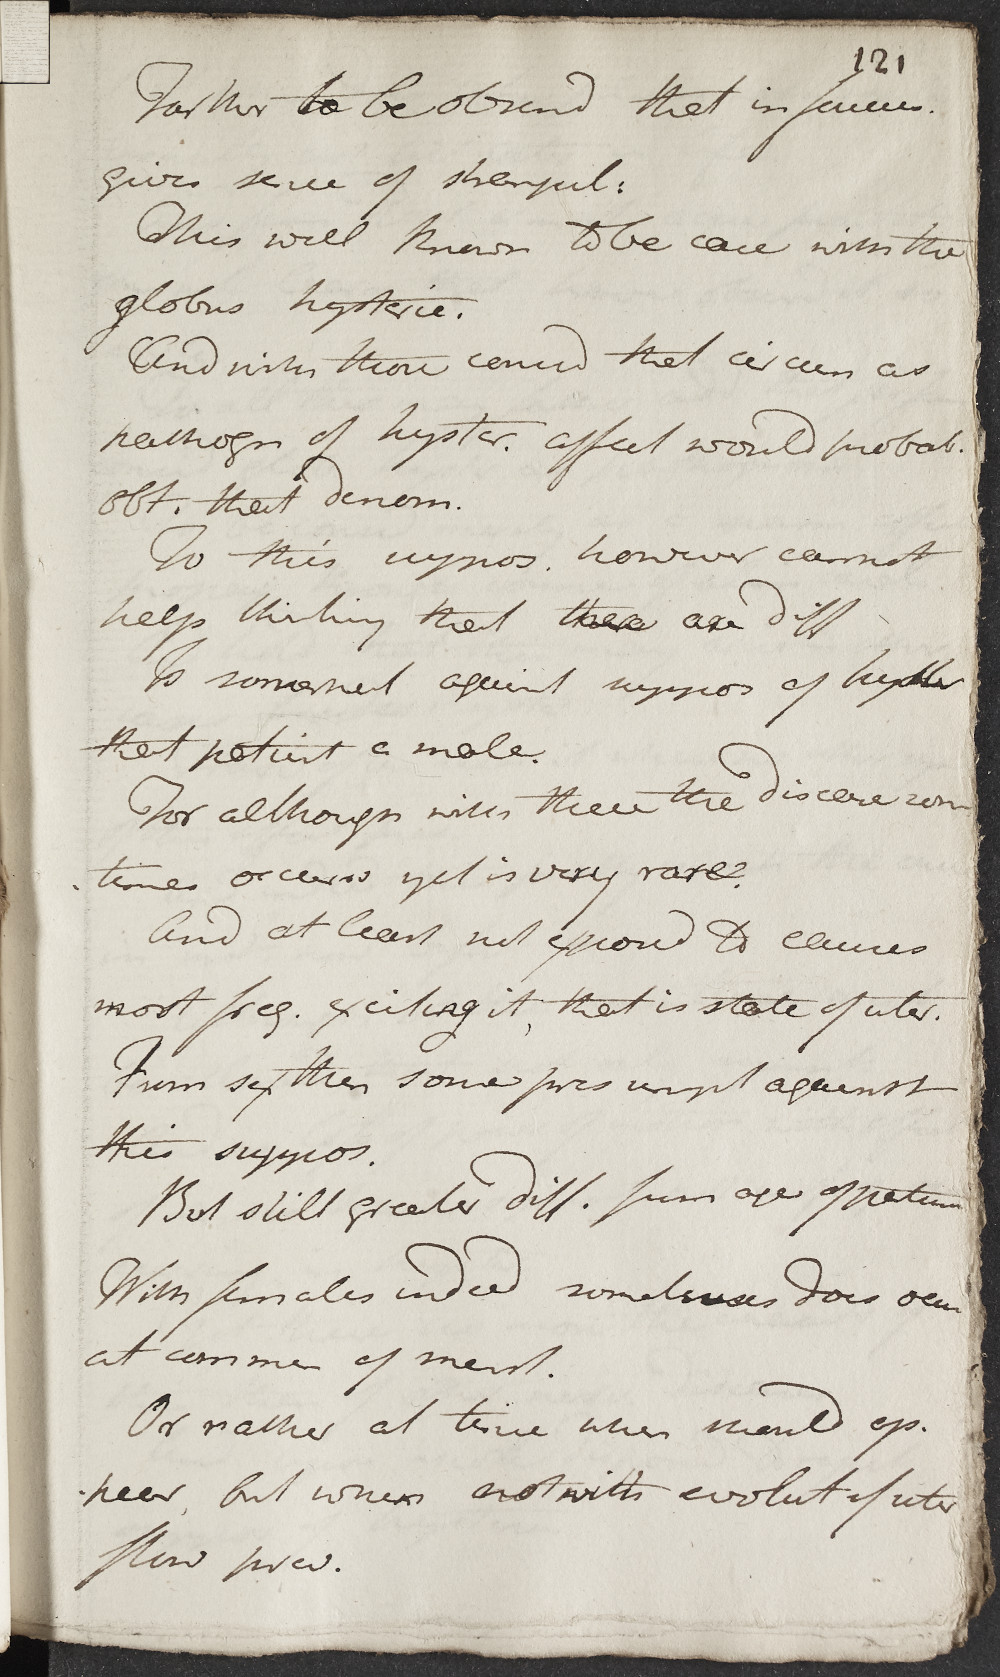 121
Farther to be observd that in fauces.
gives sense of strangul:
This well known to be case with the
globus hysteric.
And with those conced that circum as
pathogn of hyster. affect would probab.
obt. that denom.
To this suppos. however cannot
help thinking that there are diff
Is somewhat against suppos of hyster
that patient a male.
For although with these the disease som
times occurs yet is very rare.
And at least not exposed to causes
most freq. exciting it, that is state of uter.
From sex then some presumpt against
this suppos.
But still greater diff. from age of patien
With females indeed sometimes does occur
at commen of menst.
Or rather at time when should ap.
pear, but when notwith evolut of uter
flow prev.